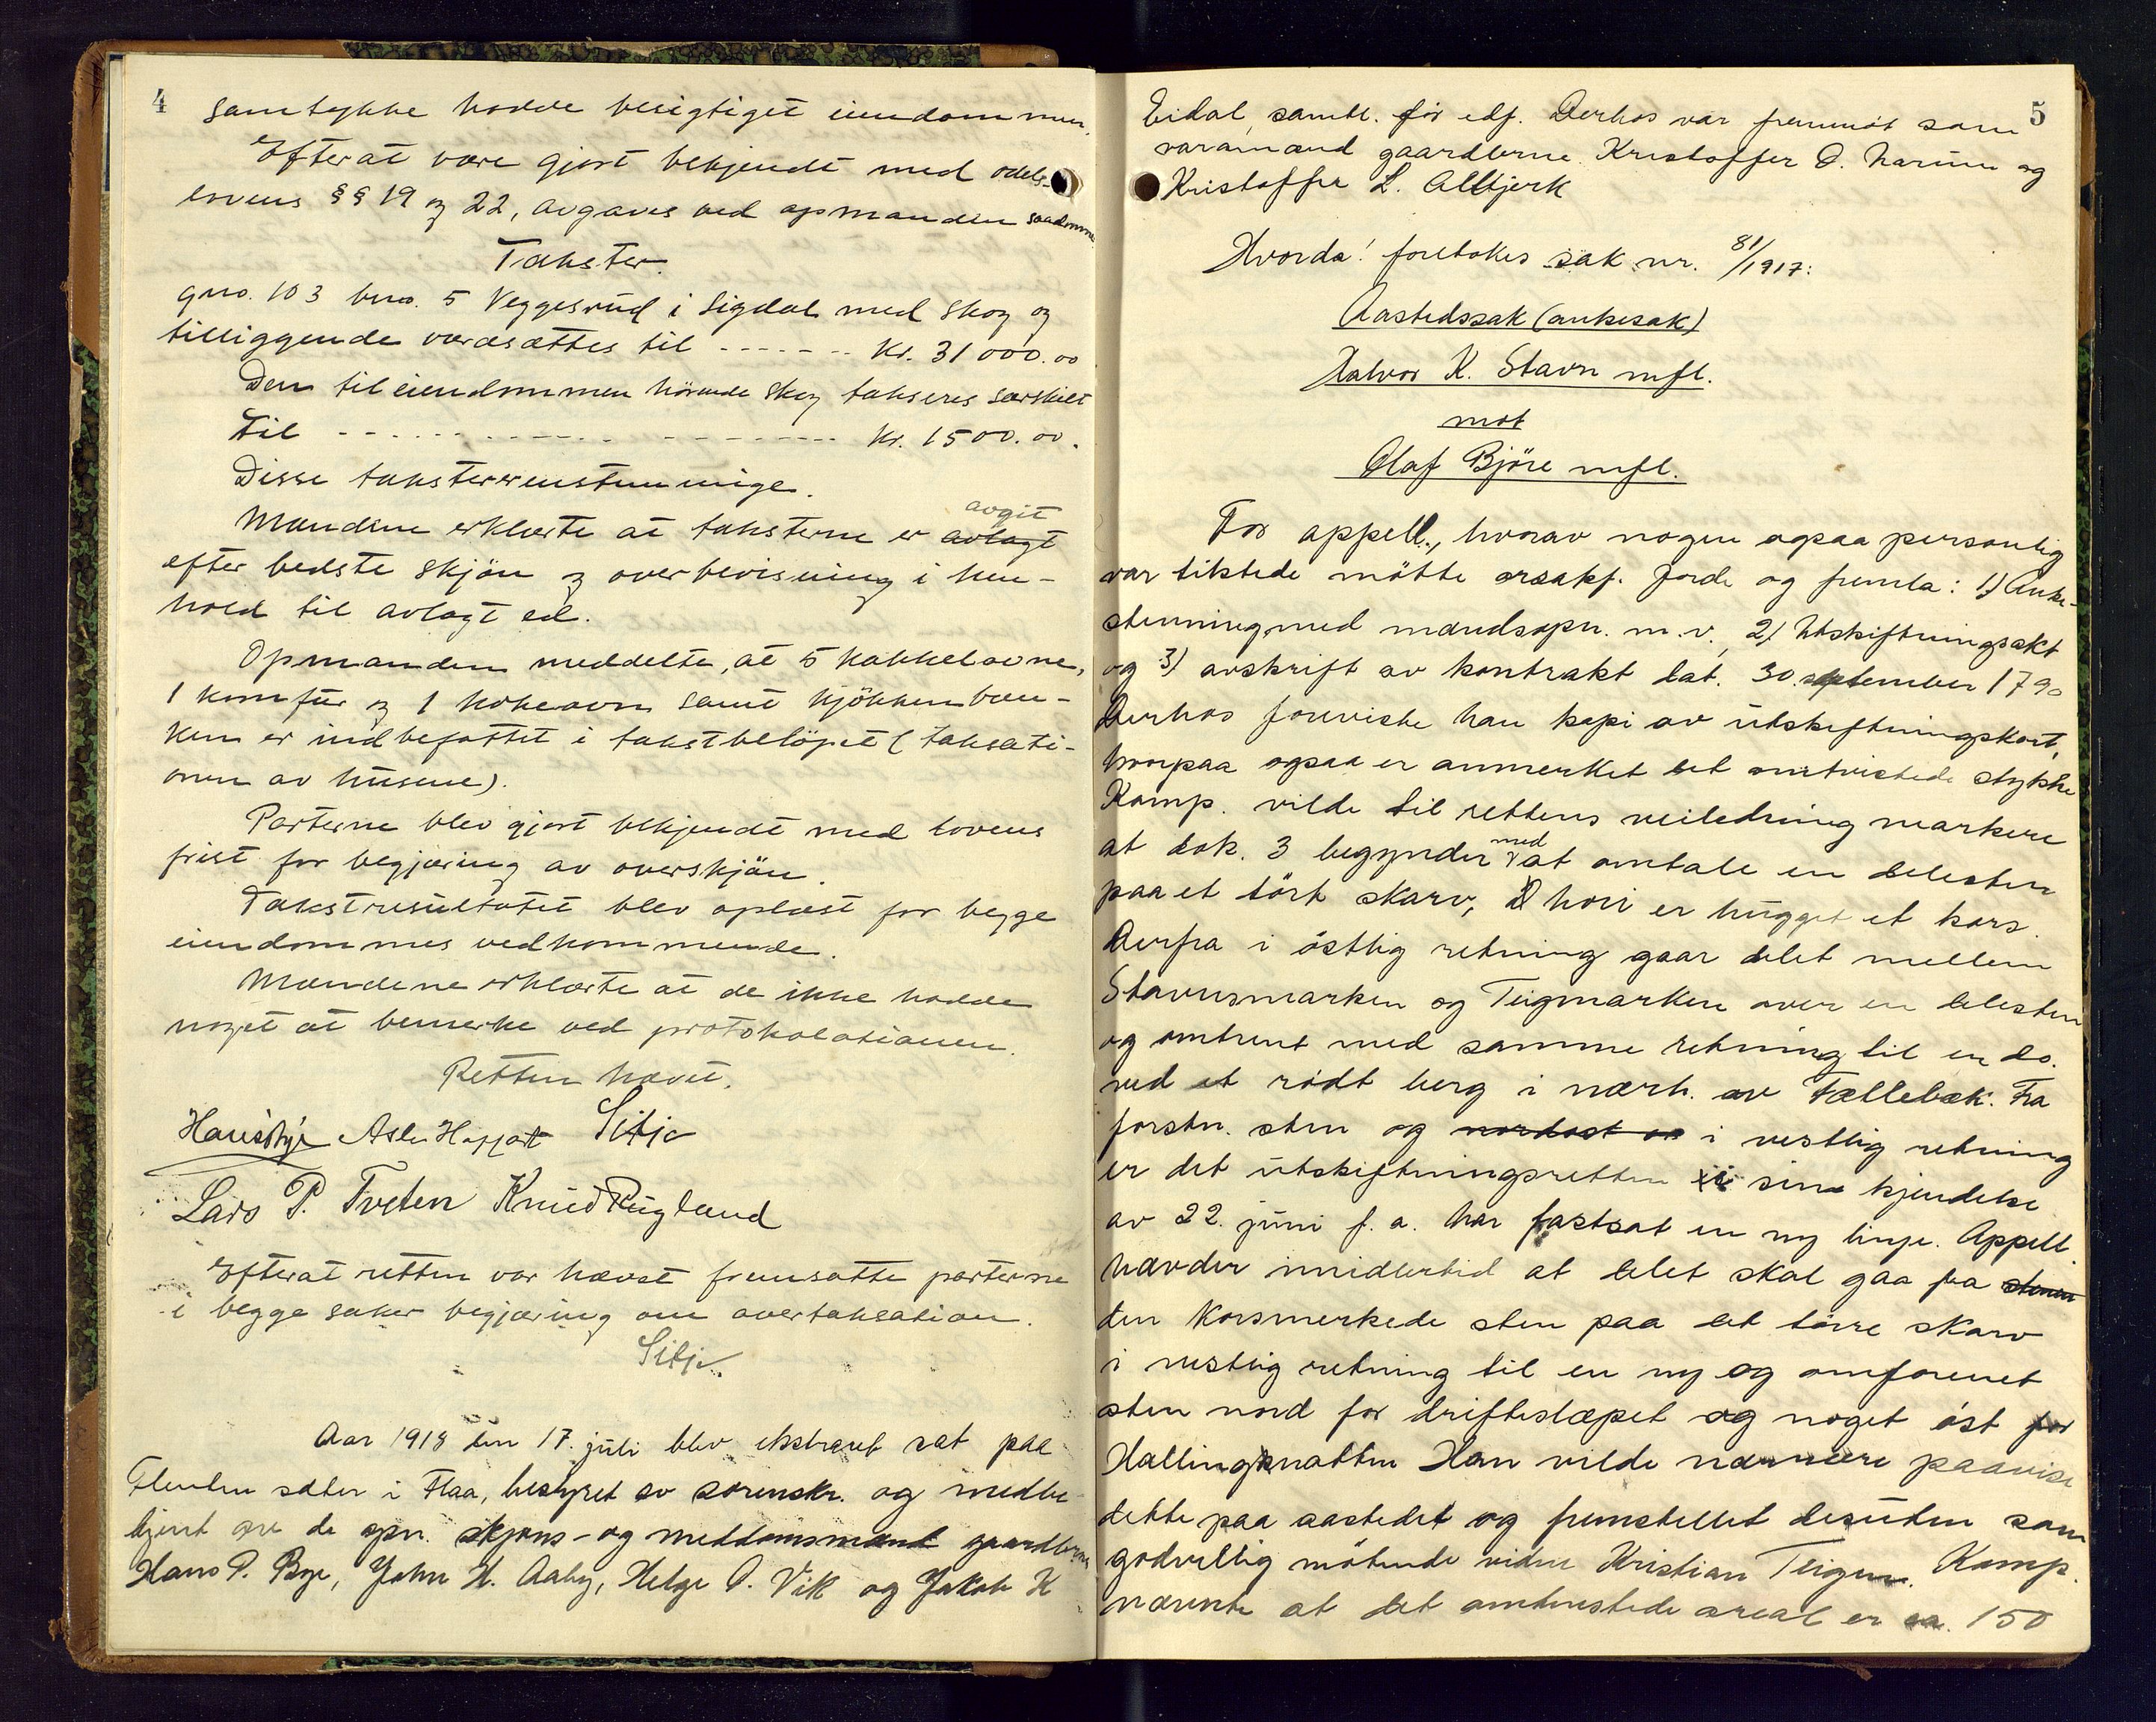 4
samtykke havde besigtiget eiendommen.
Efterat være gjort bekjendt med odels-
lovens §§ 19 og 22, avgaves ved opmanden saadanne
Takster.
gno. 103 bno. 5 Veggesrud i Sigdal med skog og
tilliggende værdsættes til ------- Kr. 31000.00
Den til eiendommen hörende skog takseres særskilt
til ------------------- Kr. 1500.00.
Disse takster er enstemmige.
avgit
Mændene erklærte at taksterne er avlagt
efter bedste skjön og overbevisning i hen-
hold til avlagt ed.
Opmanden meddelte, at 5 kakkelovne,
1 komfür og 1 kokeovn samt kjökkenbæn-
ken er indbefattet i takstbelöpet (taksati-
onen av hüsene).
Parterne blev gjort bekjendt med lovens
frist for begjæring av overskjön.
Takstresültatet blev oplæst for begge
eiendommes vedkommende.
Mændene erklærte at de ikke hadde
noget at bemerke ved protokolationen.
Retten hævet.
Asle Lilje
Lars P. Tveten Knüd Rügland
Efterat retten var hævet fremsatte parterne
i begge saker begjæring om overtaksation.
Lilje.
Aar 1918 den 17. jüli blev ekstraret sat paa
sæter i Flaa, bestyret av sorenskr. og medbe-
tjent av de opn. skjøns- og meddomsmænd gaardbrne
Hans P. Bye, John H. Aaby, Helge O. Vik og Jakob K
5
Eidal, samtl. før edf. Derhos var fremmøt som
varamænd gaardbrne Kristoffer O. og
Kristoffer L. Albjerk
Hvorda! foretokes sak nr. 81/1917:
Aastedssak (ankesak)
Halvor K. Stavn mfl.
mot
Olaf Björe mfl.
For appell., hvorav nogen ogsaa personlig
var tilstede mötte orsakf. Jorde og fremla: 1) Anke-
stevning med mændsopn. m.v., 2) Utskiftningsakt
og 3) avskrift av kontrakt dat. 30. september 1790
Derhos foreviste han kopi av ütskiftningskart,
hvorpaa ogsaa er anmerket det omtvistede stykke
Komp. vilde til rettens veiledning markere
med
at dok. 3 begynder at omtale en delesten
paa et tört skarv, hvori er hügget et kors.
Derfra i östlig retning gaar delet mellem
Stavnsmarken og Teigmarken over en delesten
og omtrent med samme retning til en do.
ved et rödt berg i nærh. av Fællebæk. Fra
forstn. sten og nordost av i vestlig retning
er det ütskiftningsretten i sin kjendelse
av 22. jüni f. a. har fastsat en ny linje. Appell.
hævder imidlertid at delet skal gaa fra stenen
den korsmerkede sten paa det törre skarv
i vestlig retning til en ny og omforenet
sten nord for drifteslæpet og noget öst for
Hallingknatten Han vilde nærmere paavise
dette paa aastedet og fremstillet desüten som
godvillig mötende vidne Kristian Teigen. Komp.
nævnte at det omtvistede areal er ca. 150